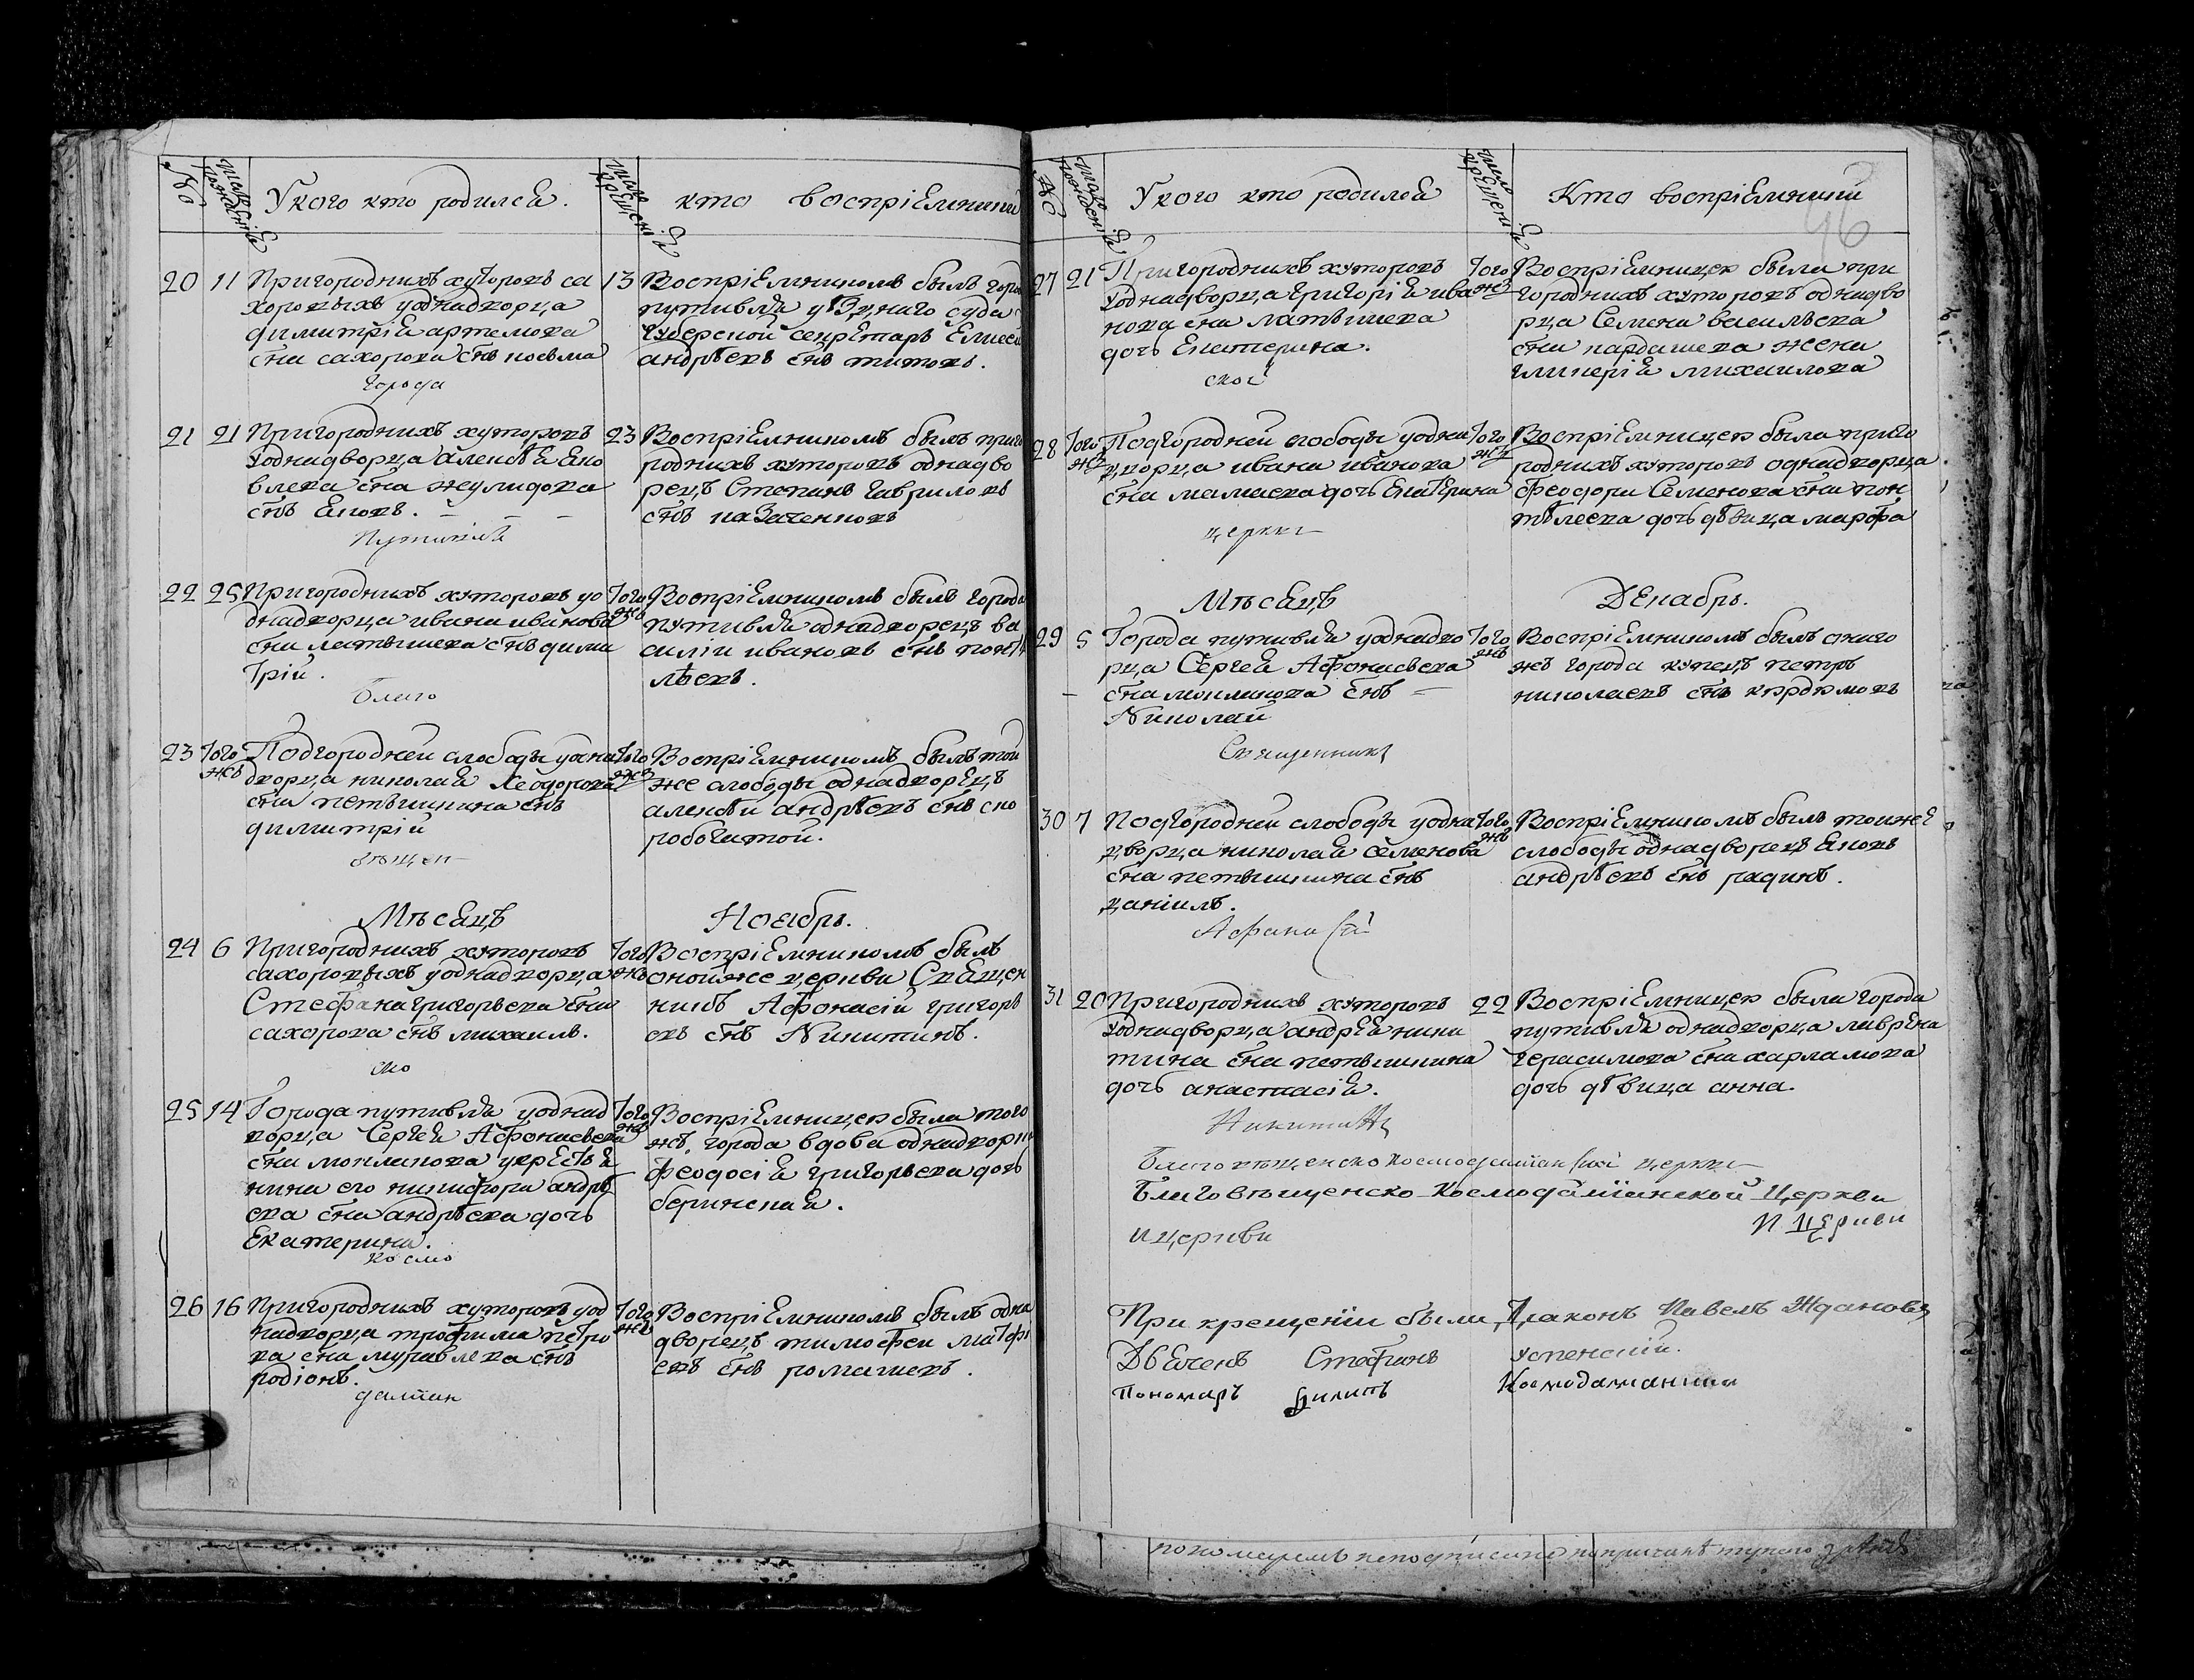 №
число рожденiя
У кого кто родился.
число крещенiя
кто воспрiемники
20 11 Пригородныхъ хуторовъ са
хоровыхъ уоднадворца
димитрiя артемова
сна сахорова снъ косьма
города
13 Воспрiемникомъ былъ горо
путивля уѣзднаго суда
губерской секретарь Елисей
андрѣевъ снъ титовъ.
21 21 Пригородныхъ хуторовъ
уоднадворца алексѣя яко
влева сна жеулидова
снъ яковъ.
Путивля
23 Воспрiемникомъ былъ приго
родныхъ хуторовъ однодво
рецъ Степанъ гавриловъ
снъ казаченковъ
22 25 Пригородныхъ хуторовъ уо
днадворца ивана иванова
сна латышева снъ дими
трiй.
Благо
Того жъ
Воспрiемникомъ былъ города
путивля однадворецъ ва
силiи ивановъ снъ понтѣ
лѣевъ.
23 Того жъ
Подгородней слободы уодна
дворца николая Ѳеодорова
сна петышкина снъ
димитрiй
вѣщен
Того жъ
Воспрiемникомъ былъ той
же слободы однадворецъ
алексѣй андрѣевъ снъ ско
робогатой.
Мѣсяцъ Ноябрь.
24 6 Пригородныхъ хуторовъ
сахоровыхъ уоднадворца
Стефана григорьева сна
сахорова снъ михаилъ.
ско
Того жъ
Воспрiемникомъ былъ
онойже церкви Священ
никъ Афонасiй григорь
евъ снъ Никитинъ.
25 14 Города путивля уоднад
ворца Сергея Афонасьева
сна моклакова укрестья
нина его никифора андрѣ
ева сна андрѣева дочь
Екатерина.
космо
Того жъ
Воспрiемницею была того
жъ города вдова однадворка
феодосiя григорьева дочь
беринская.
26 16 Пригородныхъ хуторовъ уод
надворца трофима петро
ва сна муравлева снъ
родiонъ.
дамiан
Того жъ
Воспрiемникомъ былъ одна
дворецъ тимофеи матфѣ
евъ снъ ромашевъ.
№
число рожденiя
У кого кто родился
число крещенiя
Кто воспрiемники
46
27 21 Пригородныхъ хуторовъ
уоднадворца григорiя ива
нова сна латышева
дочь Екатерина.
ской
Того жъ
Воспрiемницею была при
городныхъ хуторовъ однодво
рца Семена васильева
сна кардашева жена
гликерiя михаилова
28 Того жъ
Подгородней слободы уодна
дворца ивана иванова
сна мамаева дочь Екатерина
церкви
Того жъ
Воспрiемницею была приго
родныхъ хуторовъ однадворца
феодора Семенова сна пон
тѣлеева дочь дѣвица марфа
Мѣсяцъ Декабрь.
29 5 Города путивля уоднадво
рца Сергея Афонасьева
сна моклакова снъ
Николай
Священникъ
Того жъ
Воспрiемникомъ былъ оного
жъ города купецъ петръ
николаевъ снъ курдюмовъ
30 7 Подгородней слободы уодна
дворца николая семенова
сна петышкина снъ
данiилъ.
Афанасiй
Того жъ
Воспрiемникомъ былъ тойже
слободы однадворецъ яковъ
андрѣевъ снъ радинъ.
31 20 Пригородныхъ хуторовъ
уоднадворца андрея ники
тина сна петышкина
дочь анастасiя.
Никитинъ
22 Воспрiемницею была города
путивля однадворца лаврена
герасимова сна харламова
дочь дѣвица анна.
Благовѣщенско космодамiанской церкви
Благовѣщенско-Космодамiанской Церкви
И Церкви
и церкви
При крещенiи были Дiаконъ Павелъ Ждановъ
Дьячекъ Стефанъ успенскiй.
Пономарь Филипъ Космодамианскiй
пономаремъ неподписано попричинѣ тупого зрѣнiя